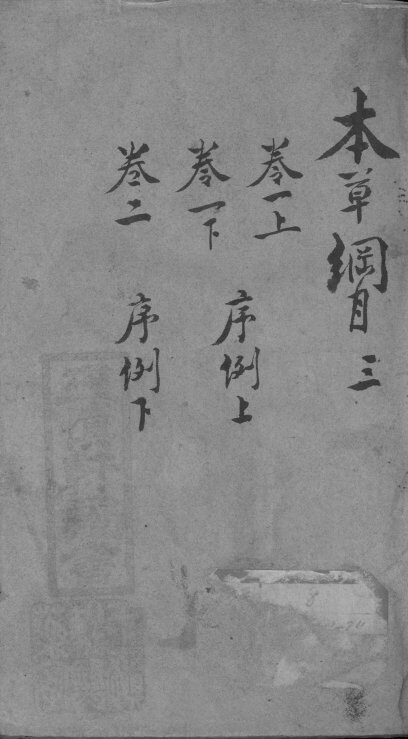 本草綱目 三
卷一上
卷一下
序例上
卷二
序例下